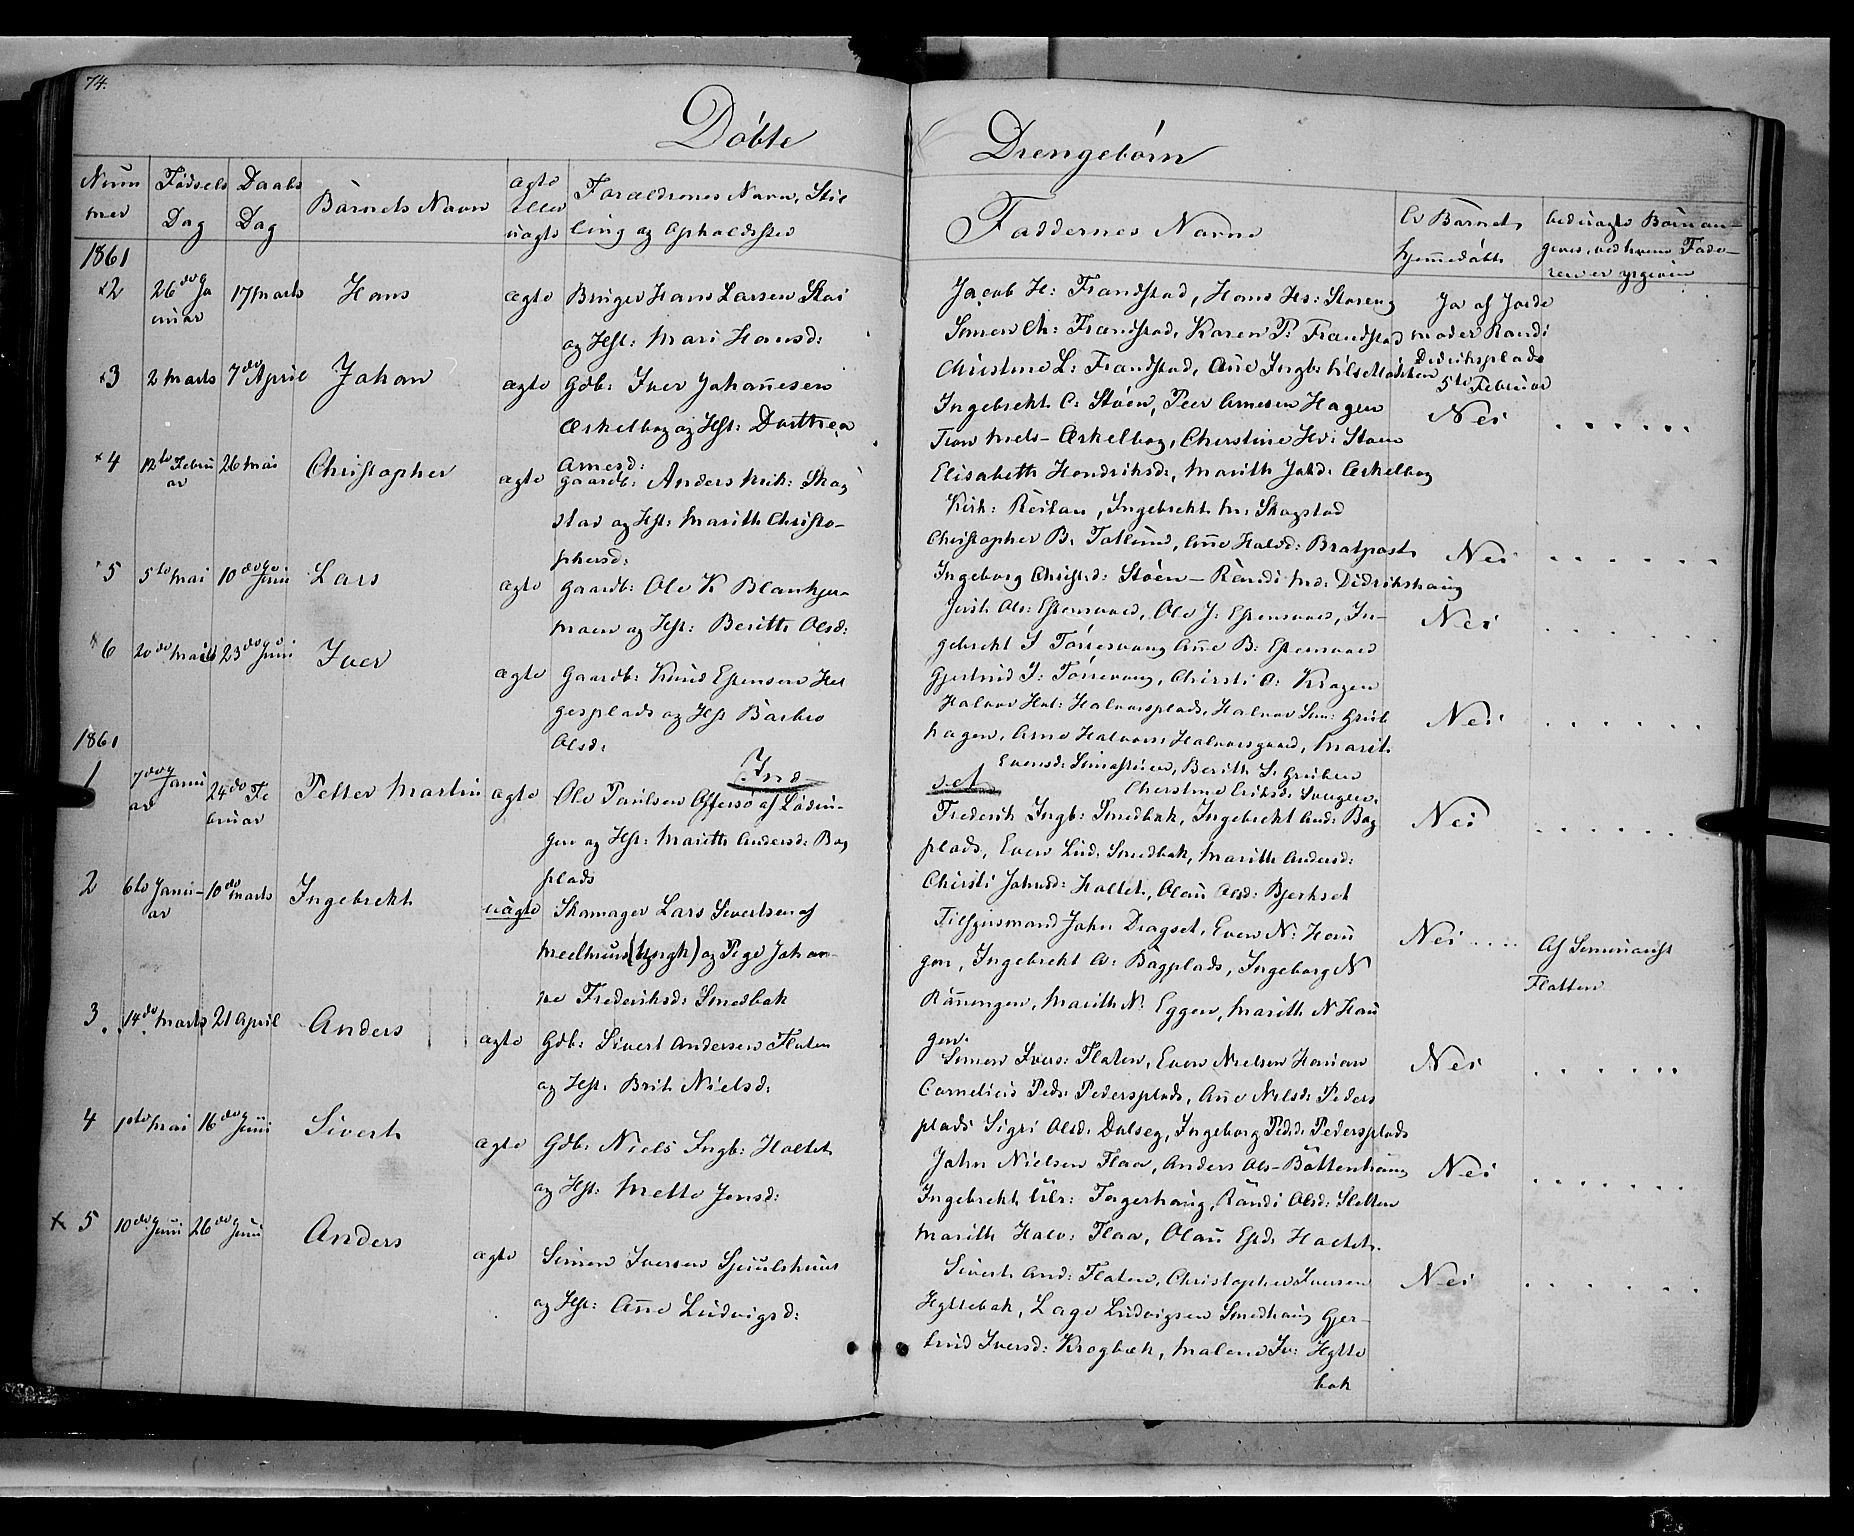 74.
Döbte Drengebörn
Num mer
Födsels Dag
Daabs Dag
Barnets Navn
ægte eller uægte
Forældrenes Navn, Stilling og Opholdssted
Faddernes Navne
Er Barnet hjemmedöbt
ved uægte Börn angives, ved hvem Faderen er opgiven
1861
×2 26de Januar 17 Marts Hans ægte Bruger Hans Larsen
og Hst: Mari Hansd:
Jacob H: Frandstad, Hans Hs: Storeng
Simen Ch: Frandstad, Karen P: Frandstad
Christine L: Frandstad, Ane Ingb:
Ja af Jorde
moder Randi
Didriksplads
5te Februar
×3 2 Marts 7de April Johan ægte Gdb: Iver Johannesen
Eskelbog og Hst: Dorthea
Arnesd:
Ingebrekt C: Stöen, Peer Arnesen Hagen
Nels- Eskelbog, Cherstine Hs: Stoen
Elisabeth Hendriksd: Marith Johd: Eskelbog
Nei . . . . . .
×4 12te Februar 26 Mai Christopher ægte Gaardb: Anders Erik: Skog
stad og Hst: Marith Christo-
phersd:
Röstan, Ingebrekt M: Skogstad
Christopher B: Ane Halvd: Bratpost
Ingeborg Christd: Stöen - Randi Didrikshaug
Nei . . . . . .
5 5te Mai 10de Juni Lars ægte Gaardb: Ole K Blankjer-
moen og Hst: Berith Olsd:
Ole J: Espensved, In-
gebrekt S Törresvang Ane B: Espensved
Gjertrud I: Törresvang, Chirsti O: Kragen
Nei . . . . . .
×6 20de Marts 23de Juni Iver ægte Gaardb: Knud Espensen Hel
gesplads og Hst Barbro
Olsd:
Halvor Hal: Halvorsplads, Halvor Sim: Grut
hagen, Arne Halvors: Halvorsgaard, Marit
Evensd: Berith S. Gruben
Cherstine Eriksd:
Nei . . . . . .
1861
Ind set
1 7de Januar 24de Februar Petter Martin ægte Ole Paulsen af Lödin-
gen og Hst: Marith Andersd: Bag
plads
Frederik Ingb: Smedbak, Ingebrekt And: Bag
plads, Even Lud: Smedbak, Marith Andersd:
Chirsti Johnsd: Haltet, Olau Olsd: Bjerkset
Nei . . . . . .
2 6te Januar 10de Marts Ingebrekt uægte Skomager Lars Sivertsen af
Meelhuus (Lyngh) og Pige Johan-
ne Frederiksd: Smedbak
Tilsynsmand John Dragset, Even N: Hau
gen, Ingebrekt A: Bagplads, Ingeborg N
Rönningen, Marith N: Eggen, Marith N Hau
gen.
Nei . . . .
Af Seminarist
Flatten
3 14de Marts 21 April Anders ægte Gdb: Sivert Andersen Flaten
og Hst: Brit Nielsd:
Simen Ivers: Flaten, Even Nielsen Haugen
Cornelius Peds: Pedersplads, Ane Nielsd: Peders
plads Sigri Olsd: Dalseg, Ingeborg Pedsd: Pedersplads
Nei . . . . . .
4 1ste Mai 16de Juni Sivert ægte Gdb: Niels Ingb: Haltet
og Hst: Mette Jensd:
John Nielsen Flaa, Anders Ols- Böttenhaug
Ingebrekt Fagerhaug, Randi Olsd: Sletten
Marith Halv: Flaa, Olau Esp: Haltet.
Nei . . . . . .
× 5 10de Juni 26de Juni Anders ægte Simen Iversen Sjeuulshuus
og Hst: Ane Ludvigsd:
Sivert And: Flaten, Christopher Iversen
Hyttebak, Lage Ludvigsen Smedhaug Gjer-
trud Iversd: Krogbæk, Malene Iv: Hytte
bak
Nei . . . . . .